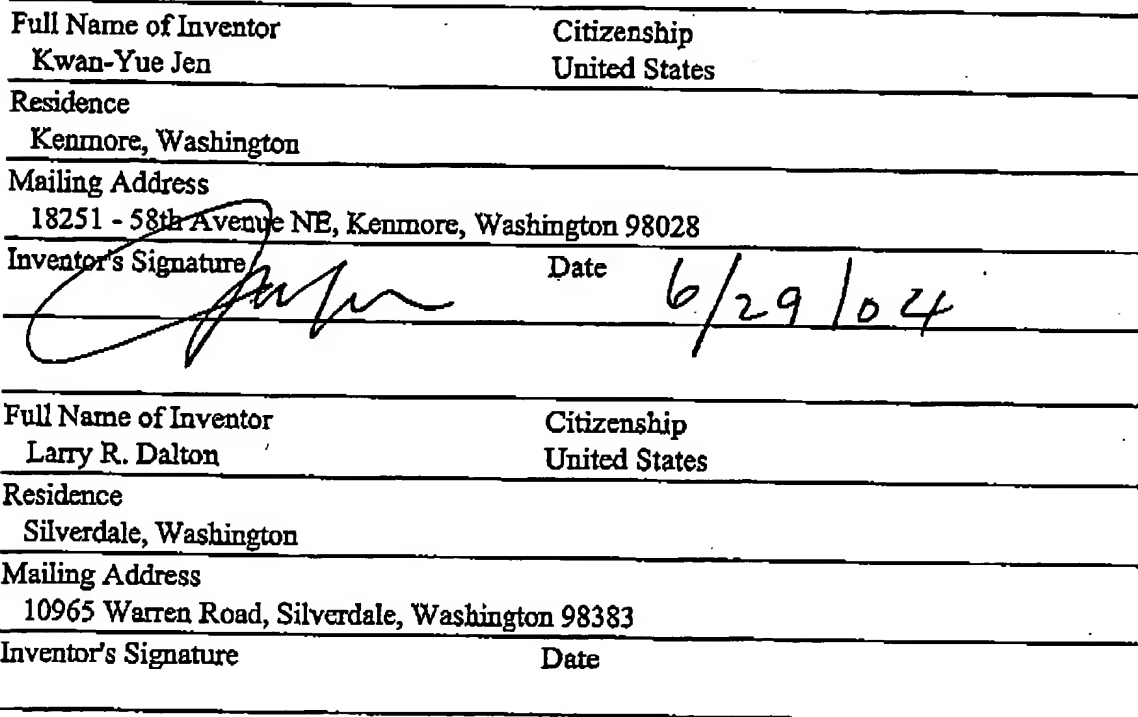 Full Name of Inventor Citizenship
Kwan-Yue Jen United States
Residence
Kenmore, Washington
Mailing Address
18251 - 58th Avenue NE, Kenmore, Washington 98028
Inventor's Signature Date 6/29/04
Full Name of Inventor Citizenship
Larry R. Dalton United States
Residence
Silverdale, Washington
Mailing Address
10965 Warren Road, Silverdale, Washington 98383
Inventor's Signature Date